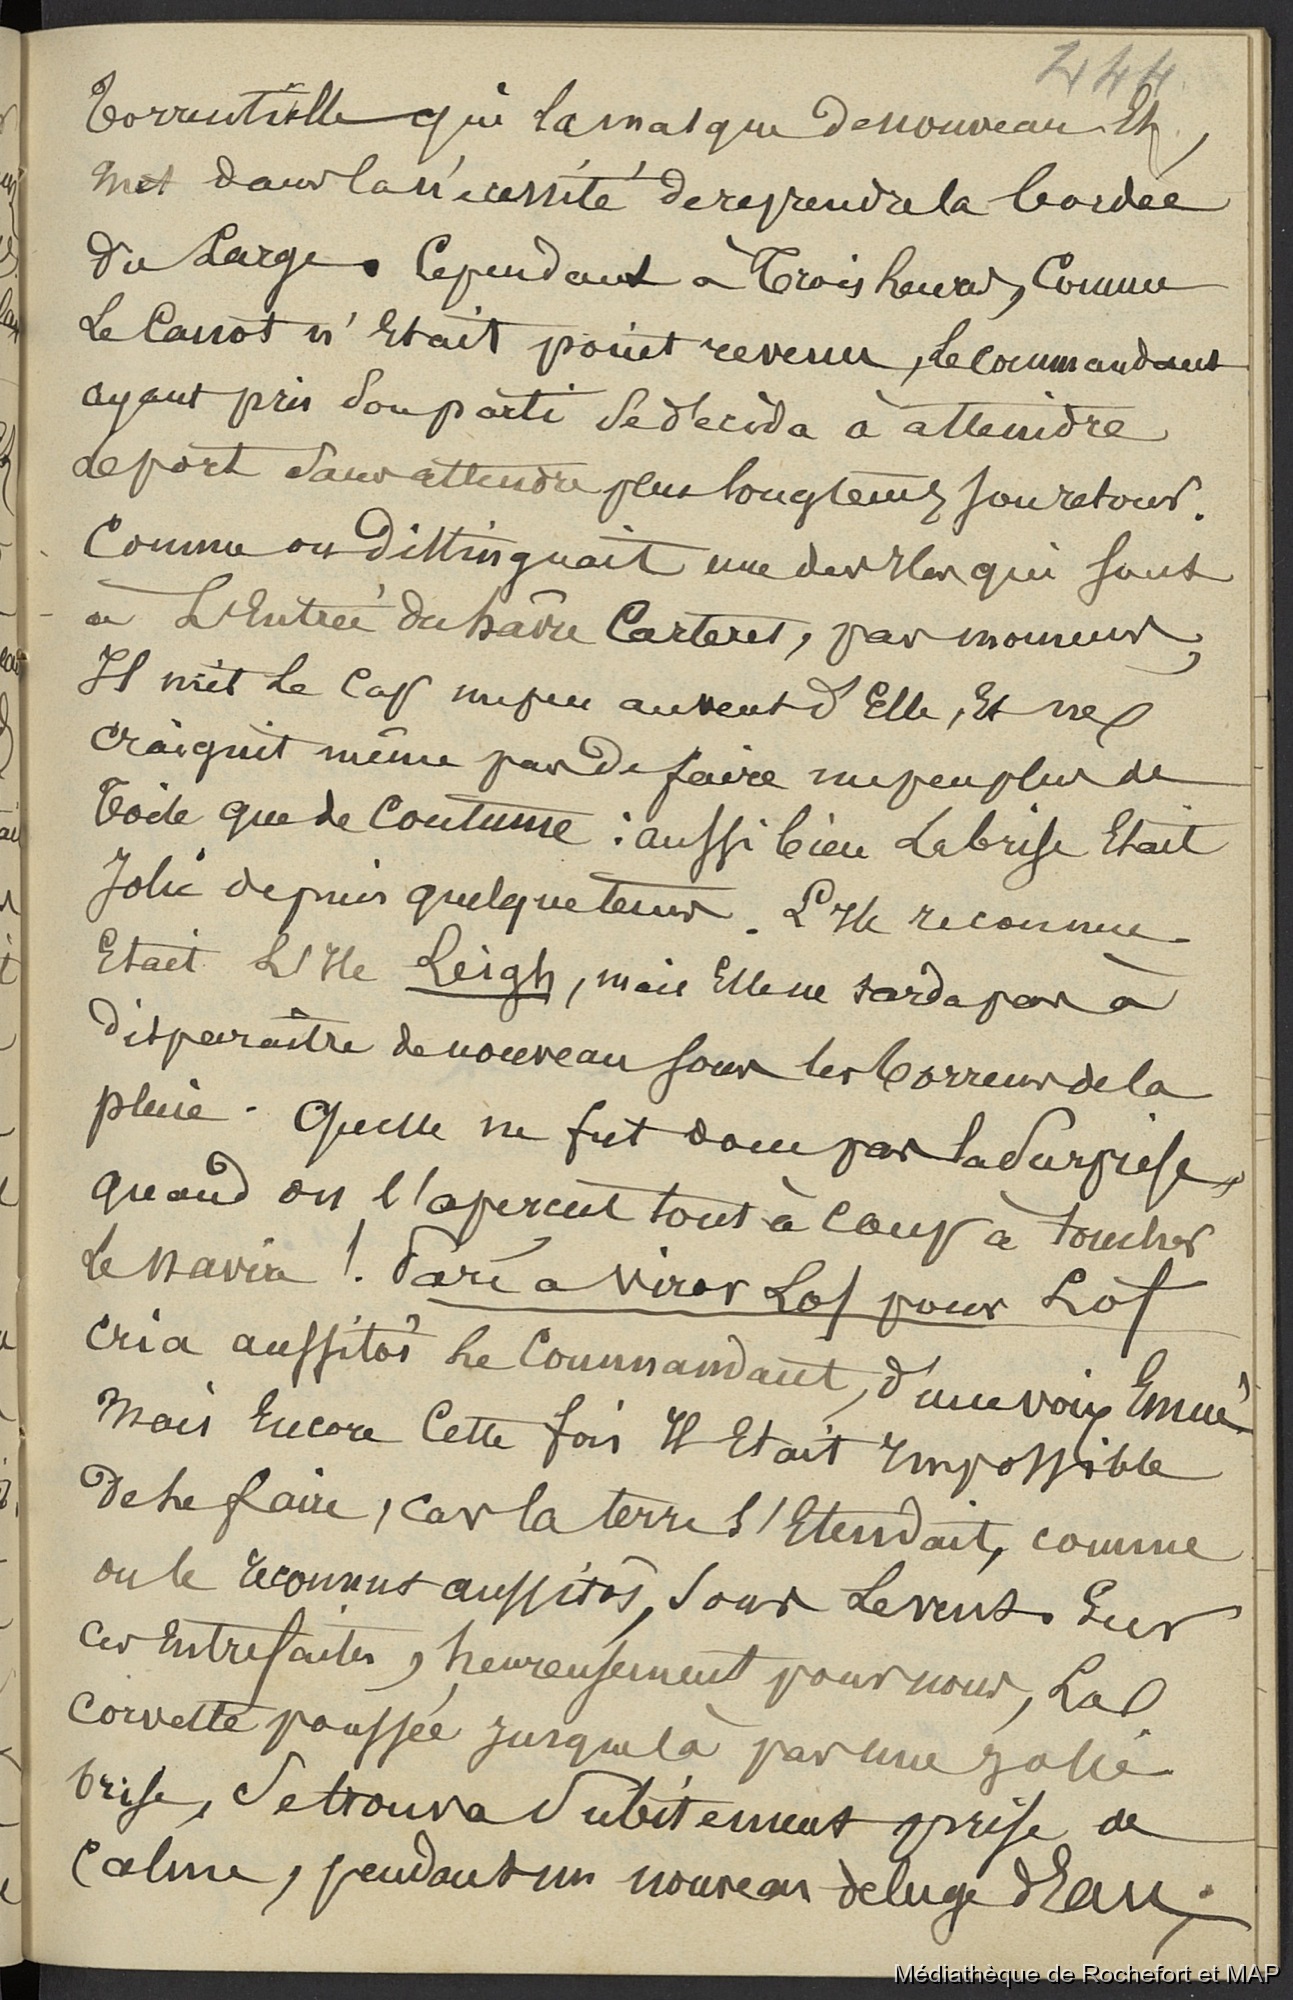 244
torrentielle qui la masque de nouveau Et,
met dans la nécessité de reprendre la bordée
du Large. Cependant à trois heures, Comme
Le Canot n'Etait point revenu, le commandant
ayant pris son parti se décida à atteindre
le port sans attendre plus longtemps son retour.
Comme on distinguait une des Iles qui sont
à L'Entrée du hâvre Carteret, par moments,
Il mit le Cap un peu au vent d'Elle, Et ne
craignit même pas de faire un peu plus de
toile que de Coutume : aussi bien La brise Etait
Jolie depuis quelque tems. L'Ile reconnue
Etait L'Ile Leigh, mais Elle ne tarda pas à
disparaître de nouveau sous les torrens de la
pluie. Quelle ne fut donc pas la Surprise,
quand on l'aperçut tout à coup à toucher
Le navire ! Paré a virer Lof pour Lof
cria aussitôt le Commandant, d'une voix Emue
Mais Encore Cette fois Il Etait Impossible
de le faire, car la terre s'Etendait, comme
on le reconnut aussitôt, sous Le vent. Sur
ces Entrefaites, heureusement pour nous, La
corvette poussée jusque là par une jolie
brise, se trouva subitement prise de
Calme, pendant un nouveau deluge d'Eau;
Médiathèque de Rochefort et MAP